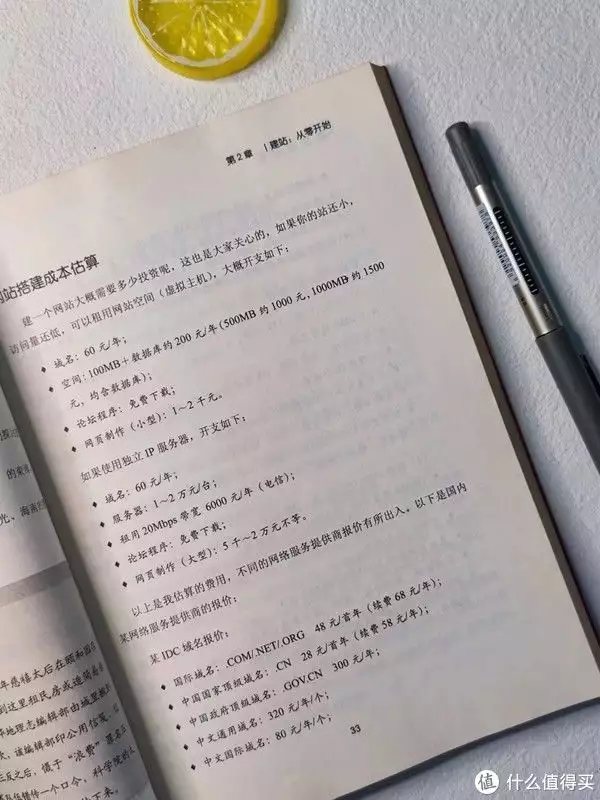 第2章 | 建站：从零开始
站搭建成本估算
建一个网站大概需要多少投资呢，这也是大家关心的，如果你的站还小，
访问量还低，可以租用网站空间（虚拟主机），大概开支如下：
◆ 域名：60元/年；
◆ 空间：100MB＋数据库约200元/年（500MB约1000元，1000MB约1500
元，均含数据库）；
◆ 论坛程序：免费下载；
◆ 网页制作（小型）：1～2千元。
如果使用独立IP服务器，开支如下：
◆ 域名：60元/年；
◆ 服务器：1～2万元/台；
◆ 租用20Mbps带宽6000元/年（电信）；
◆ 论坛程序：免费下载；
◆ 网页制作（大型）：5千～2万元不等。
以上是我估算的费用，不同的网络服务提供商报价有所出入。以下是国内
某网络服务提供商的报价：
某IDC域名报价：
◆ 国际域名：.COM/.NET/.ORG 48元/首年（续费68元/年）；
◆ 中国国家顶级域名：.CN 28元/首年（续费58元/年）；
◆ 中国政府顶级域名：.GOV.CN 300元/年；
◆ 中文通用域名：320元/年/个；
◆ 中文国际域名：80元/年/个；
33
的变
光，海
年慈禧太后在颐和园
到这里租民房或造简易
地理志编辑部由城里搬
该编辑部印公用信笺、信
三反之后，慑于“浪费”罪名
传一个口令，科学院的
下来。
值 什么值得买